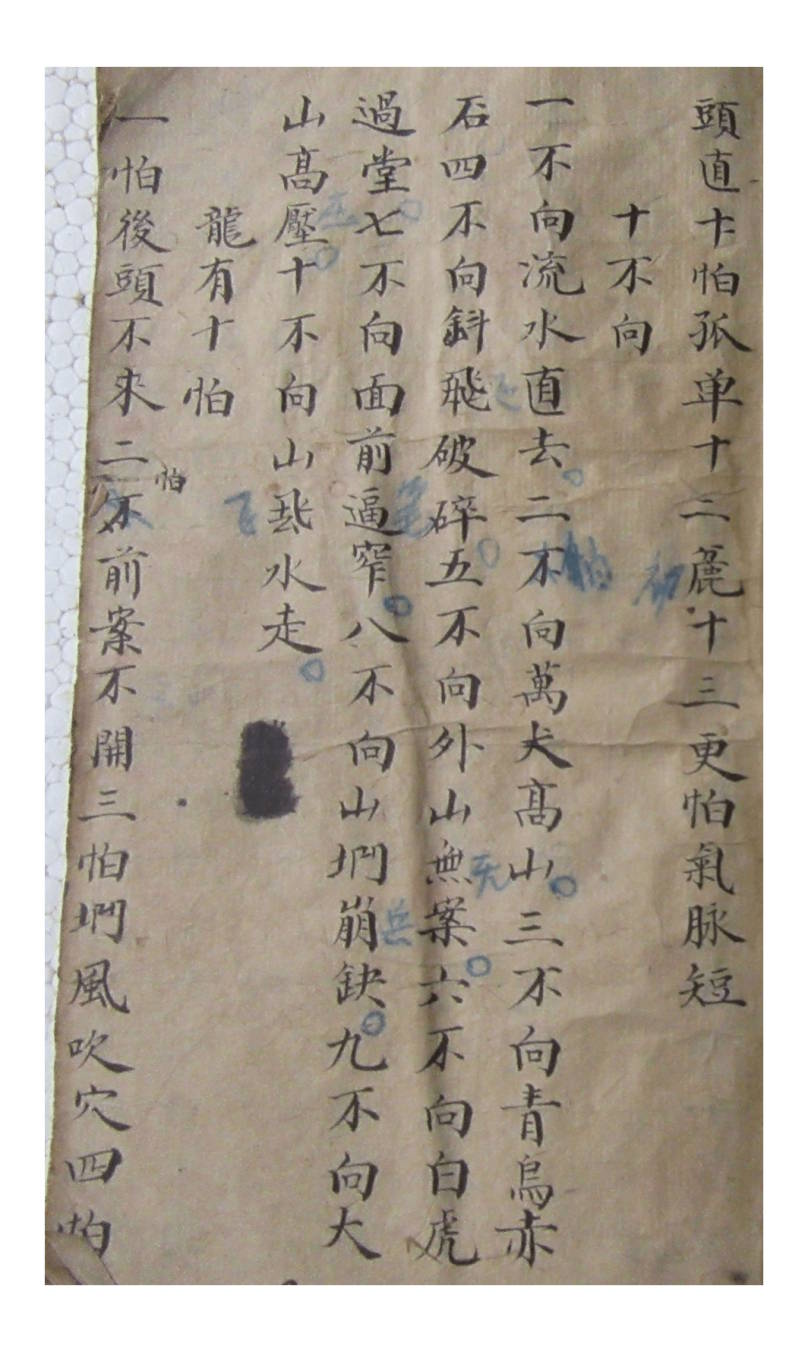 頭直卞怕孤单十二麁十三更怕氣脉短
十不向
一不向流水直去二不向萬犬高山三不向青烏赤
石四不向斜飛破碎五不向外山無案六不向白虎
過堂七不向面前逼窄八不向山坍崩缺九不向大
山高壓十不向山飛水走
龍有十怕
一怕後頭不来二怕不前案不開三怕坍風吹穴四怕